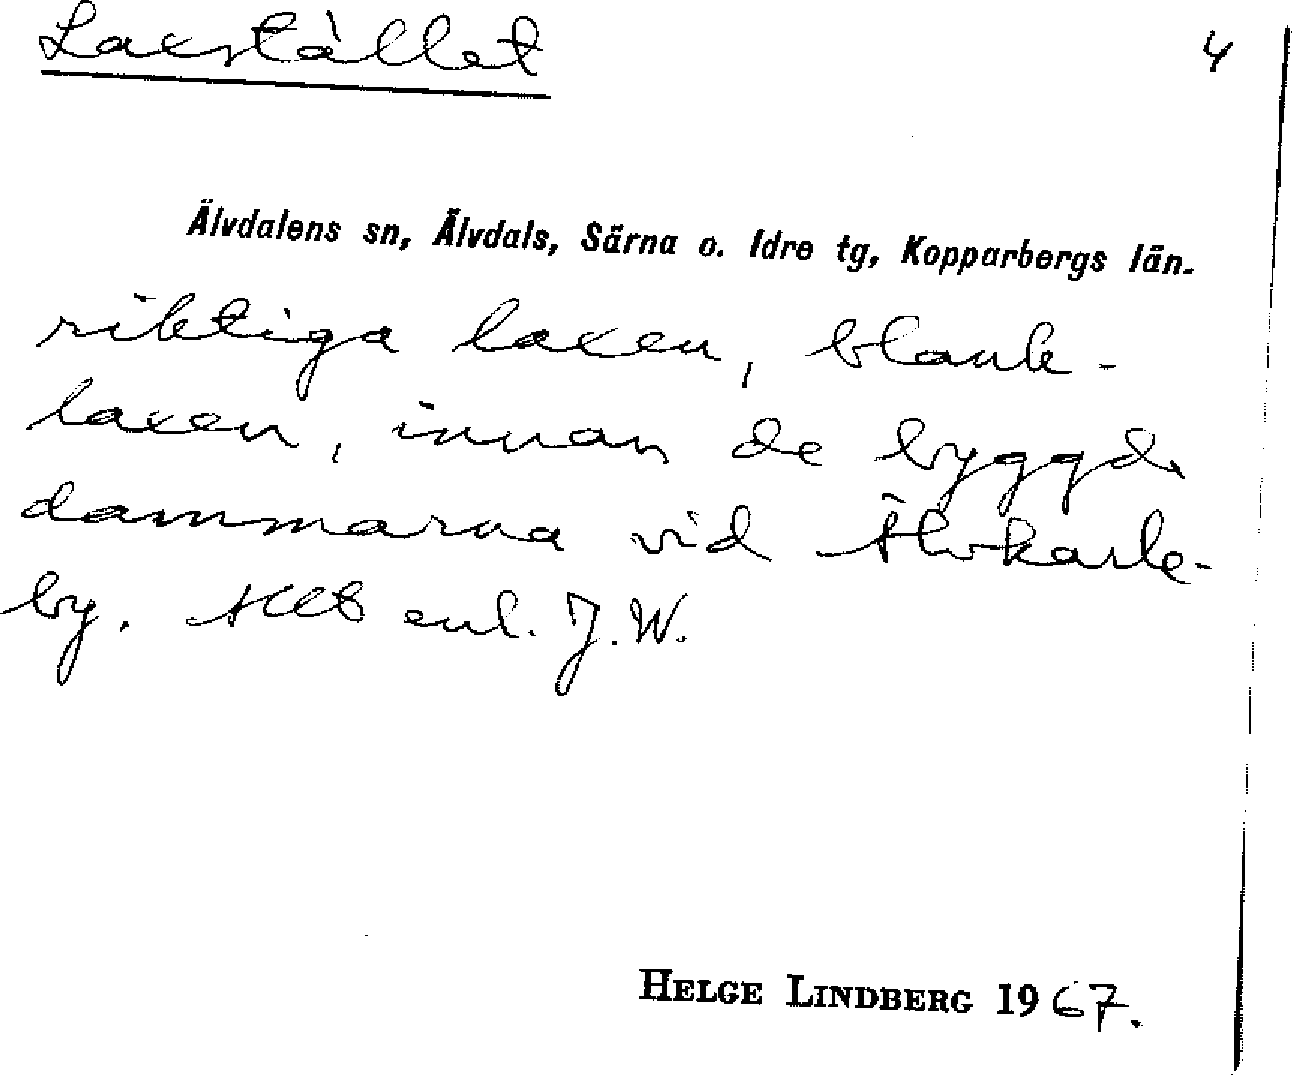 Laxstället 4
Älvdalens sn, Älvdals, Särna o. Idre tg, Kopparbergs län.
riktiga laxen, blank-
laxen, innan de byggde
dammarna vid Älvkarle-
by. Allt enl. J.W.
HELGE LINDBERG 1967.